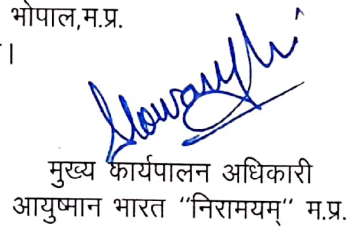 भोपाल,म.प्र.
।
मुख्य कार्यपालन अधिकारी
आयुष्मान भारत ‘‘निरामयम्‘‘ म.प्र.